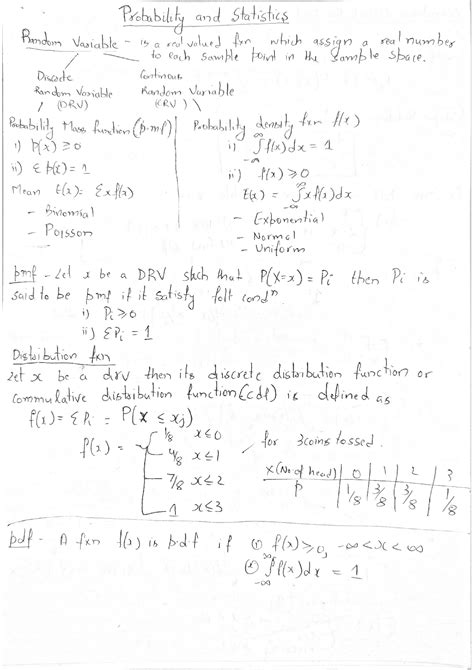 Probability and Statistics
Random Variable - is a real valued fxn which assign a real number
to each sample point in the sample space.
Discrete
Random Variable
(DRV)
Continuous
Random Variable
(CRV)
Probability Mass function (p.mf)
i) p(x) ≥ 0
ii) Σ p(x) = 1
Mean E(x) = Σxf(x)
- Binomial
- Poisson
Probability density fxn f(x)
i) ∞∫-∞ f(x)dx = 1
ii) f(x) ≥ 0
E(x) = ∞∫-∞ xf(x)dx
- Exponential
- Normal
- Uniform
pmf - Let x be a DRV such that P(X=x) = Pi then Pi is
said to be pmf if it satisfy condⁿ
i) Pi ≥ 0
ii) ΣPi = 1
Distribution fxn
Let x be a drv then its discrete distribution function or
commulative distribution function (cdf) is defined as
f(x) = ΣPi = P(X ≤ xj)
f(x) = 1/8 x≤0
4/8 x≤1
7/8 x≤2
1 x≤3
, for 3 coins tossed.
X (No of head) 0 1 2 3
P 1/8 3/8 3/8 1/8
pdf - A fxn f(x) is p.d.f if ① f(x) ≥ 0, -∞<x<∞
② ∞∫-∞ f(x)dx = 1